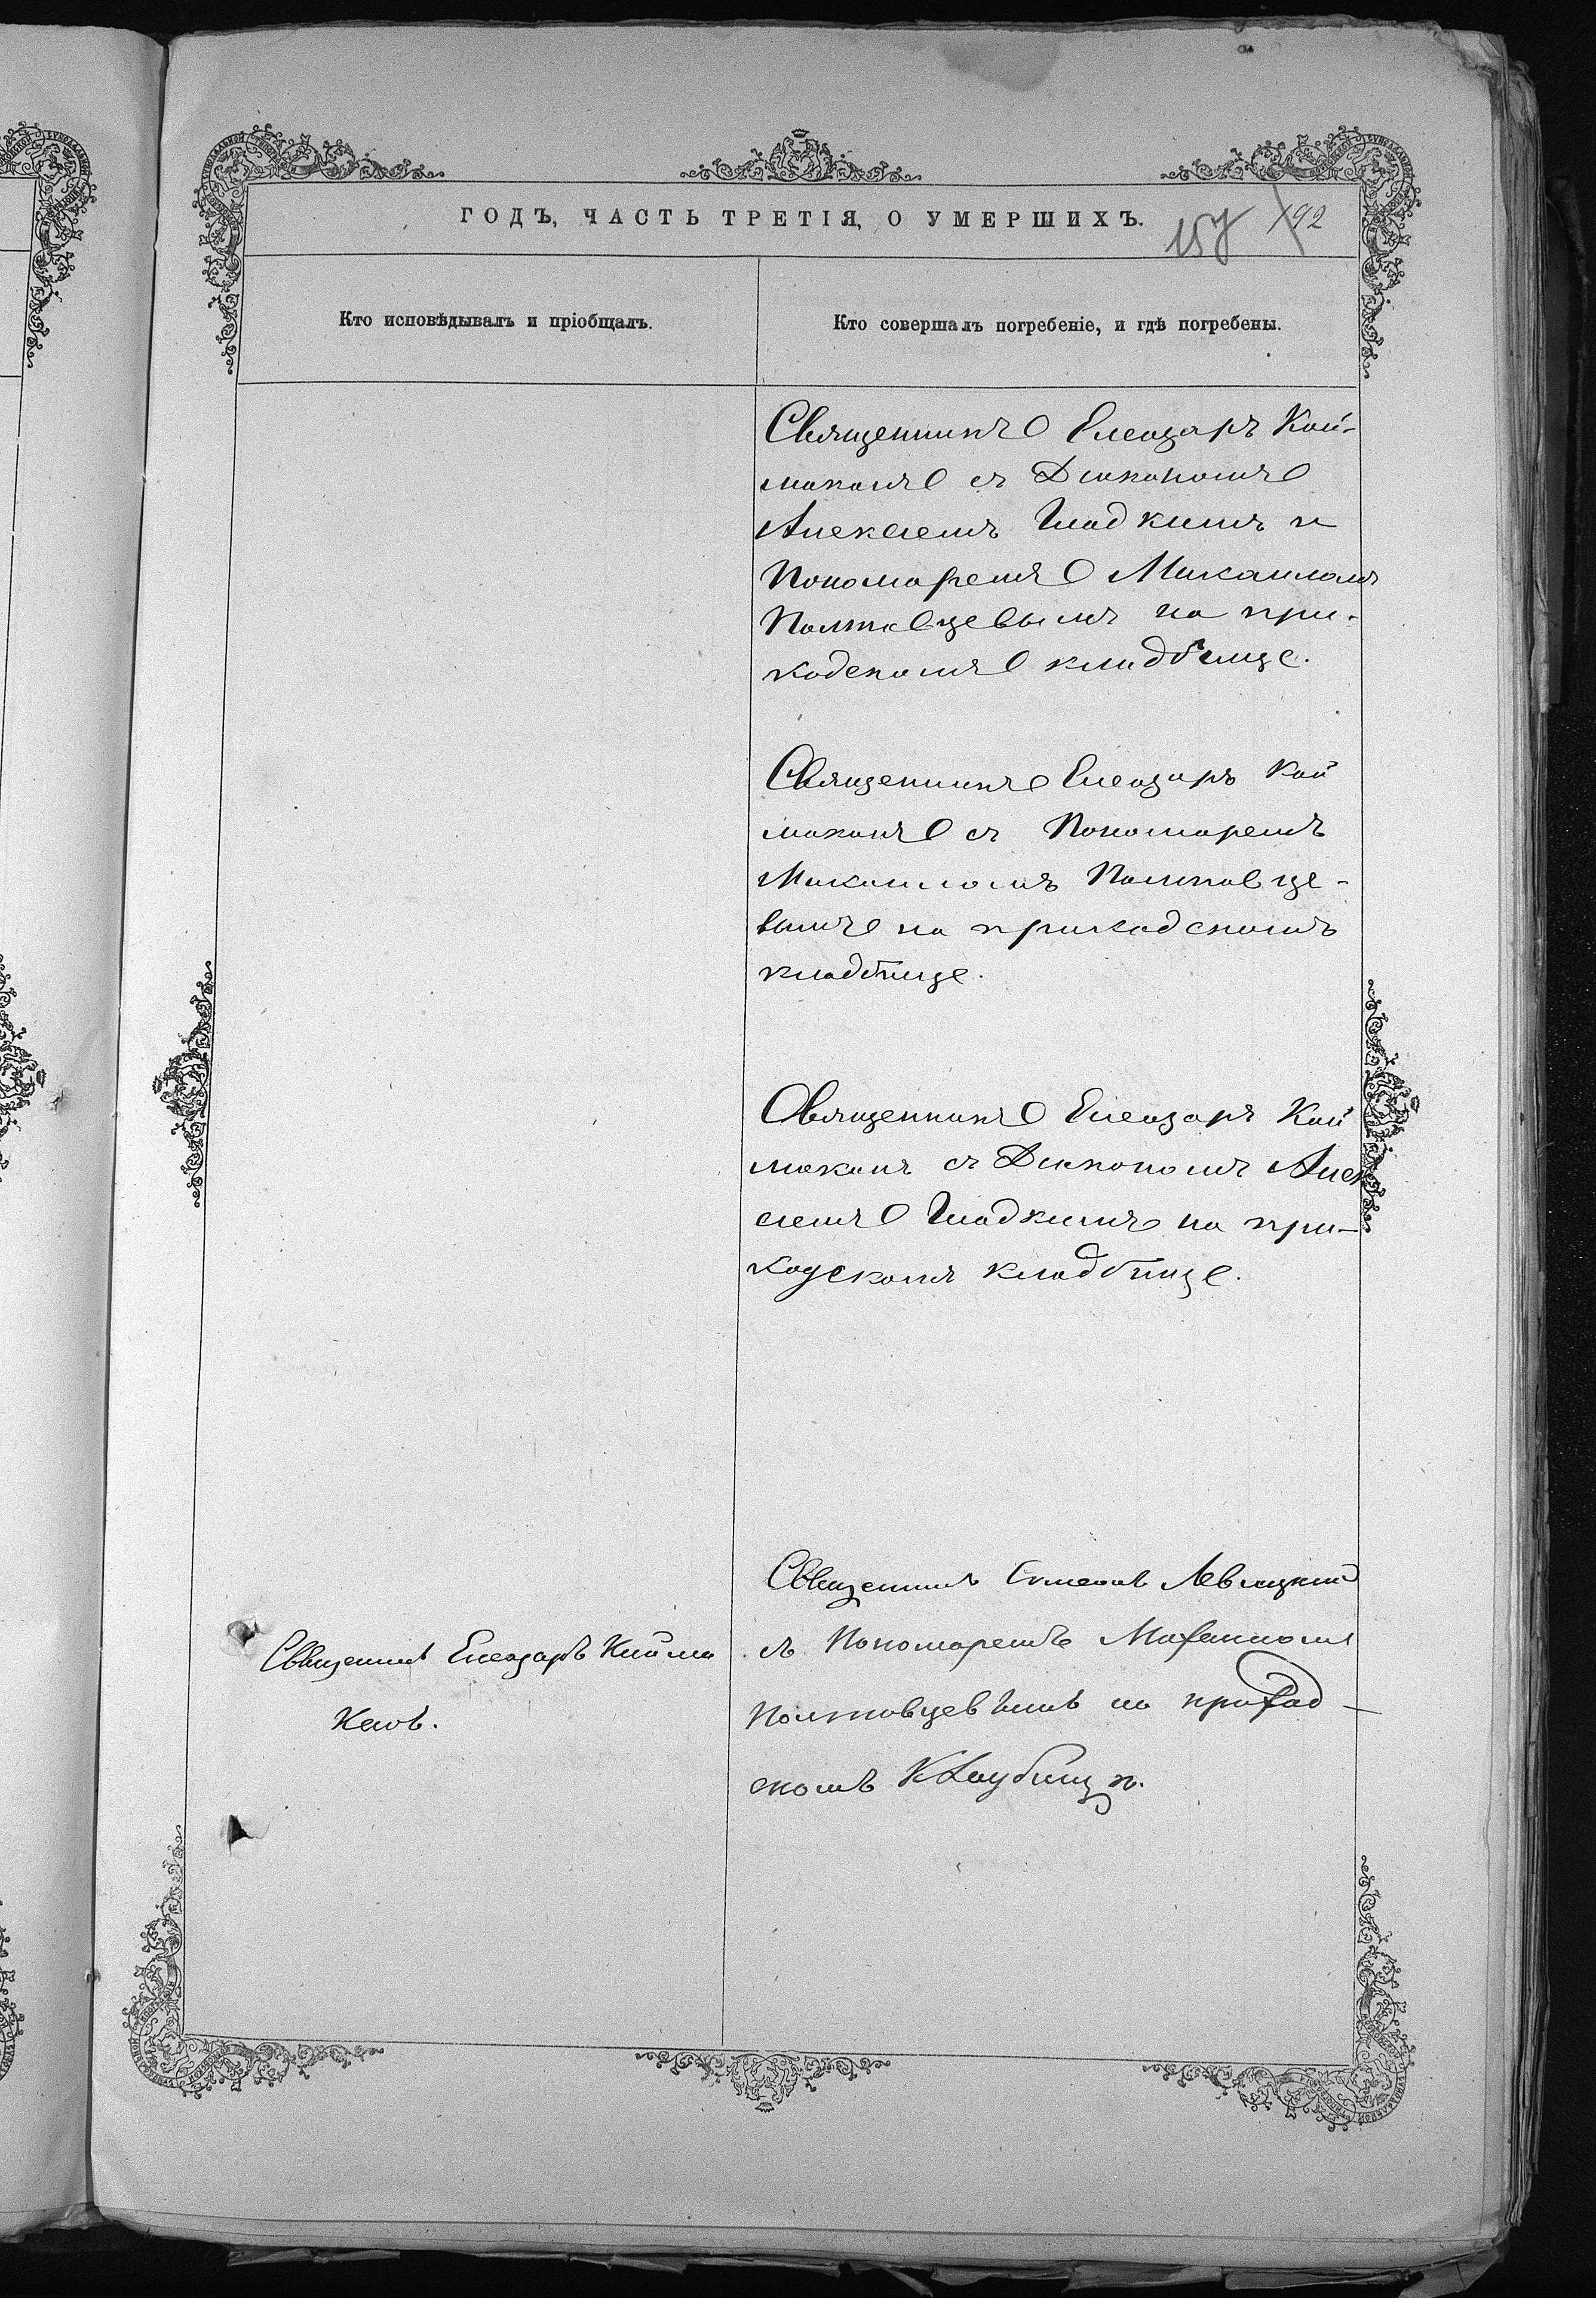 ГОДЪ, ЧАСТЬ ТРЕТІЯ, О УМЕРШИХЪ.
157 192
Кто исповѣдывалъ и пріобщалъ.
Кто совершалъ погребеніе, и гдѣ погребены.
Священникъ Елеазаръ Кай-
маканъ съ Діакономъ
Алексіемъ Гладкимъ и
Пономаремъ Михаиломъ
Полтавцевымъ на при-
ходскомъ кладбище.
Священникъ Елеазаръ Кай
маканъ съ Пономаремъ
Михаиломъ Полтавце-
вымъ на приходскомъ
кладбище.
Священникъ Елеазаръ Кай
маканъ съ Діакономъ Алек
сіемъ Гладкимъ на при-
ходскомъ кладбище.
Священникъ Елеазаръ Кайма
канъ.
Священникъ Симеонъ Левицкий
съ Пономаремъ Михаиломъ
Полтовцевымъ на приход-
скомъ Кладбищѣ.